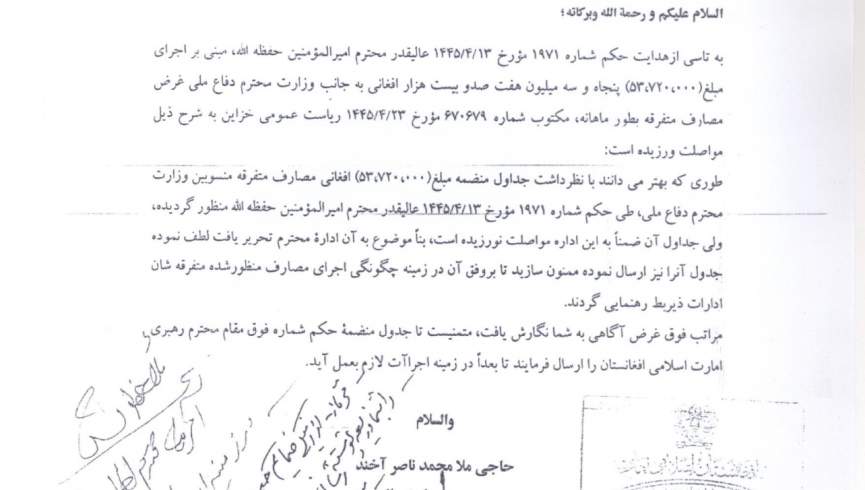 السلام علیکم و رحمة الله وبرکاته؛
به تاسی از هدایت حکم شماره ۱۹۷۱ مؤرخ ۱۴۴۵/۴/۱۳ عالیقدر محترم امیرالمؤمنین حفظه الله، مبنی بر اجرای
مبلغ(۵۳،۷۲۰،۰۰۰) پنجاه و سه میلیون هفت صدو بیست هزار افغانی به جانب وزارت محترم دفاع ملی غرض
مصارف متفرقه بطور ماهانه، مکتوب شماره ۶۷۰۶۷۹ مؤرخ ۱۴۴۵/۴/۲۳ ریاست عمومی خزاین به شرح ذیل
مواصلت ورزیده است:
طوری که بهتر می دانند با نظرداشت جداول منضمه مبلغ(۵۳،۷۲۰،۰۰۰) افغانی مصارف متفرقه منسوبین وزارت
محترم دفاع ملی، طی حکم شماره ۱۹۷۱ مؤرخ ۱۴۴۵/۴/۱۳ عالیقدر محترم امیرالمؤمنین حفظه الله منظور گردیده،
ولی جداول آن ضمناً به این اداره مواصلت نورزیده است، بناً موضوع به آن ادارهٔ محترم تحریر یافت لطف نموده
جدول آنرا نیز ارسال نموده ممنون سازید تا بروفق آن در زمینه چگونگی اجرای مصارف منظورشده متفرقه شان
ادارات ذیربط رهنمایی گردند.
مراتب فوق غرض آگاهی به شما نگارش یافت، متمنیست تا جدول منضمهٔ حکم شماره فوق مقام محترم رهبری
امارت اسلامی افغانستان را ارسال فرمایند تا بعداً در زمینه اجراآت لازم بعمل آید.
والسلام
حاجی ملا محمد ناصر آخند